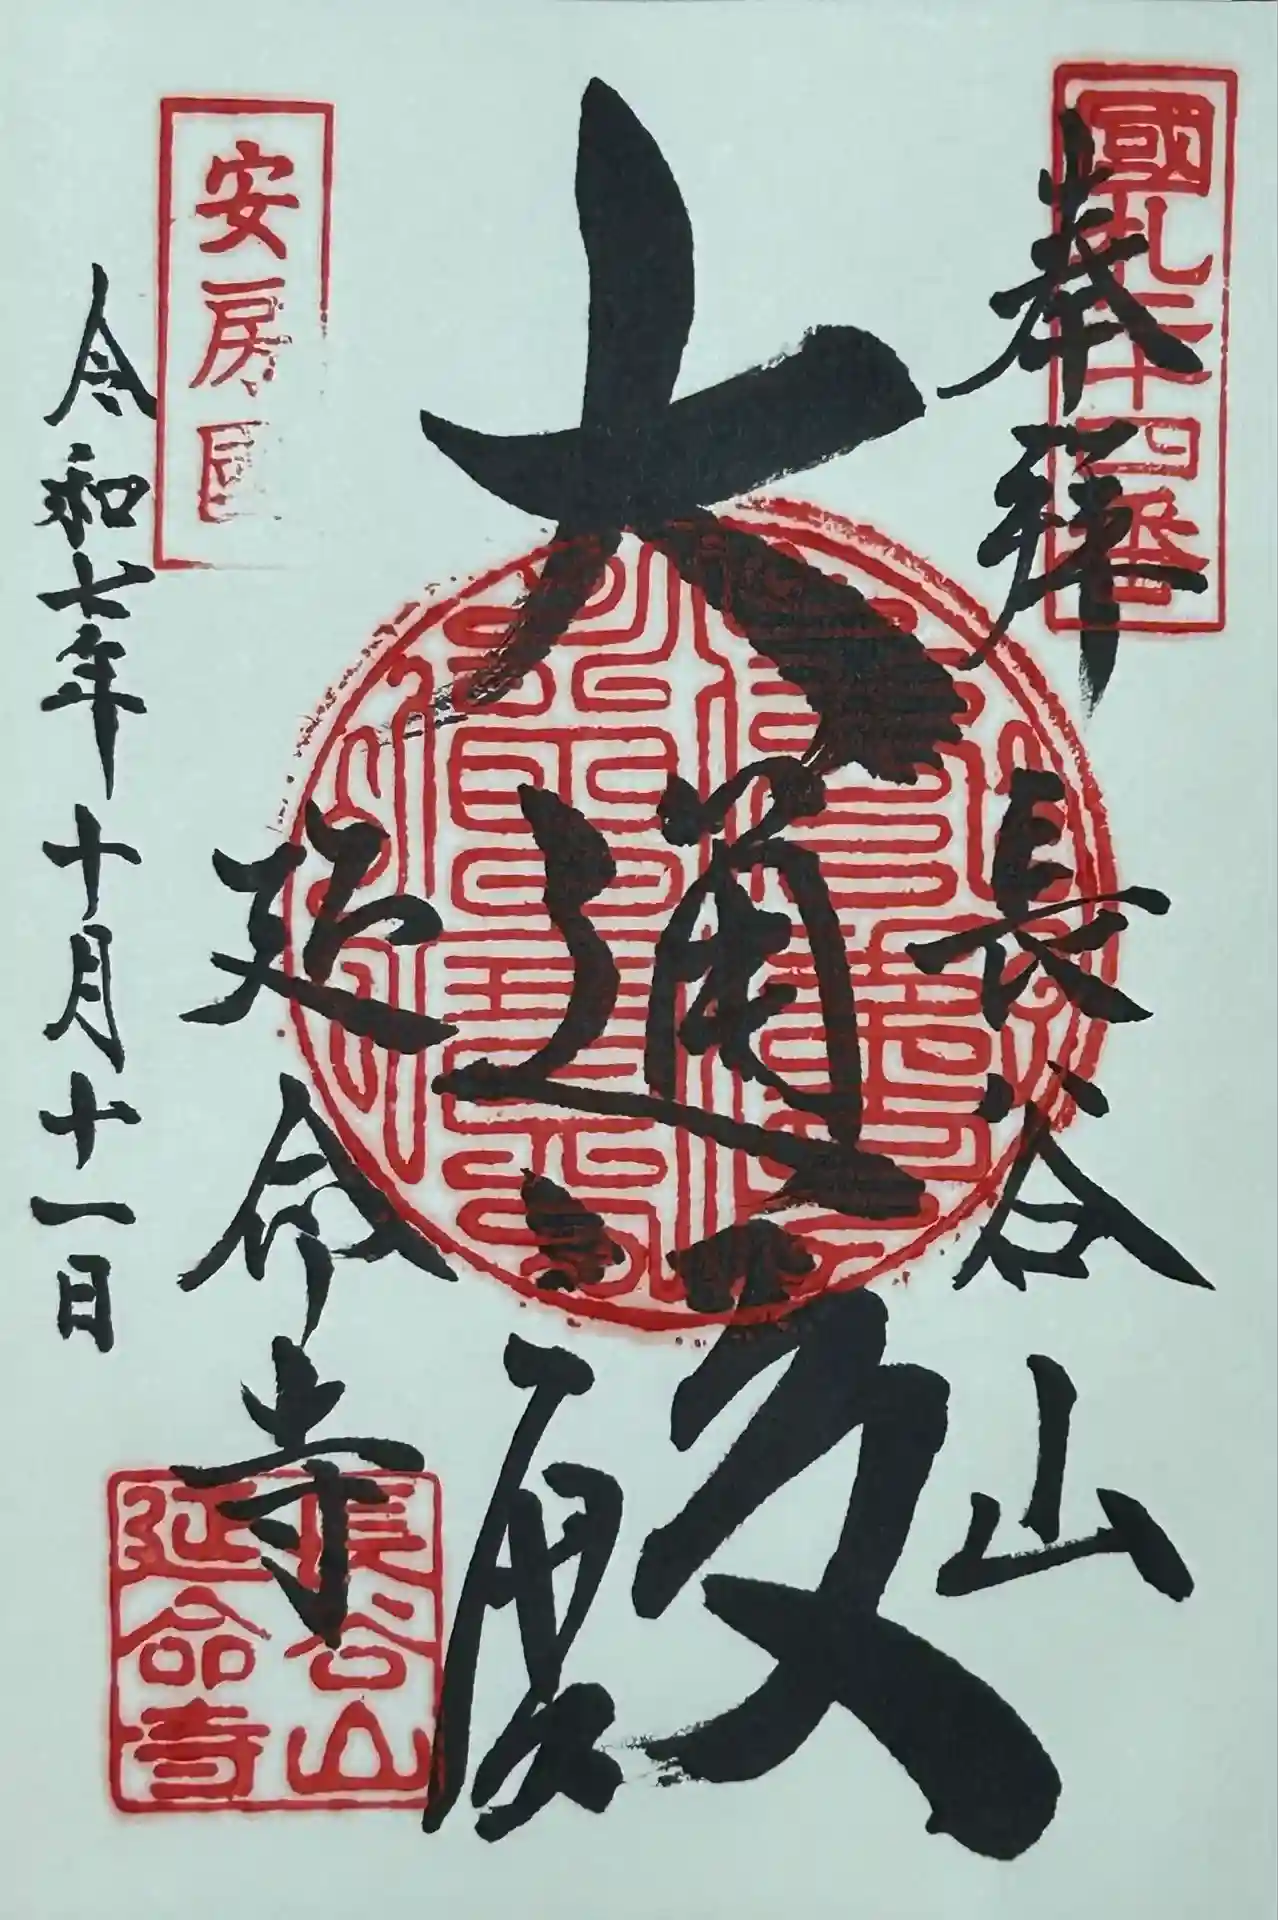 國札二十四番
奉拝
長谷山
大通殿
延命寺
安房国
令和七年十月十一日
長谷山
延命寺